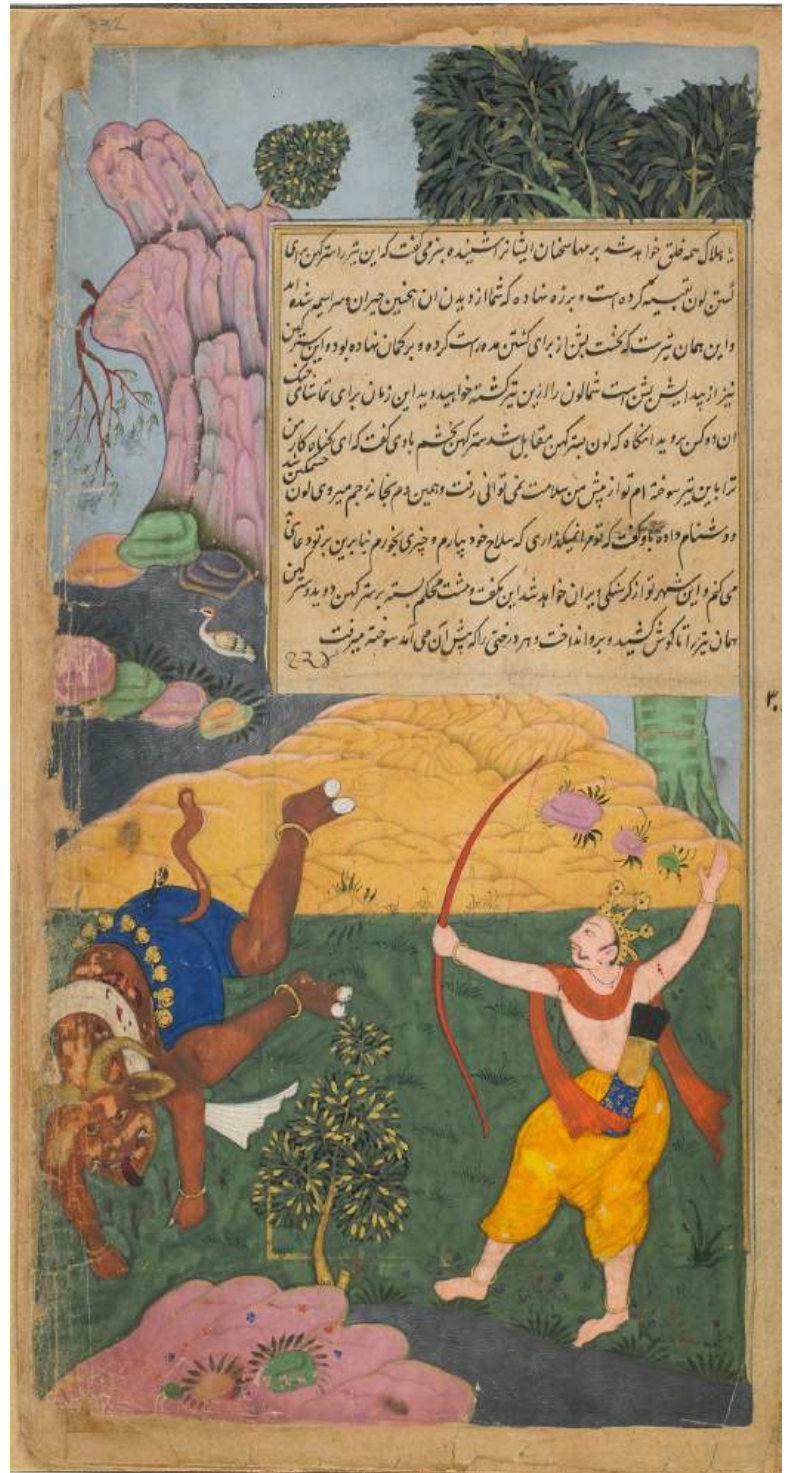 یا هلاک همه خلق خواهد شد برمها سخنان ایشانرا شنیده بنرمی گفت که این تیر را سترکهن برای
کشتن لون تعبیه کرده است و بر زه نهاده که شما از دیدن ان اینچنین حیران و سراسیمه شده اند
و این همان تیرست که نخست بشن از برای کشتن مده راست کرده و بر کمان نهاده بود و این سترکهن
نیز از پیدایش بشن است شما لون را ازین تیر کشته خواهید دید این زمان برای تماشای جنک
ان دو کس بروید انکاه که لون بسترکهن مقابل شد سترکهن بخشم باوی گفت که ای کناه کار من
ترا باین تیر سوخته ام تو از پیش من سلامت نمی توانی رفت و همین دم بخانهٔ جم میروی لون خشمکین شد
و دشنام داده باو گفت که تو مرا نمیکذاری که سلاح خود بیارم و چیزی بخورم بنابرین بر تو دعای
می کنم و این شهر تو از کرسنکی ویران خواهد شد این بگفت و مشت محکم بسته بر سترکهن دوید و سترکهن
همان تیر را تا کوش کشید و برو انداخت و هر درختی را که پیش آن می آمد سوخته میرفت